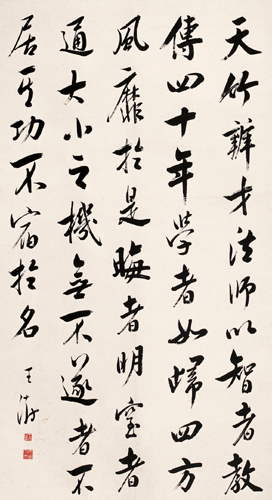 天竺辯才法師以智者教
傳四十年學者如歸四方
風靡於是晦者明窒者
通大小之機無不遂者不
居其功不宿於名